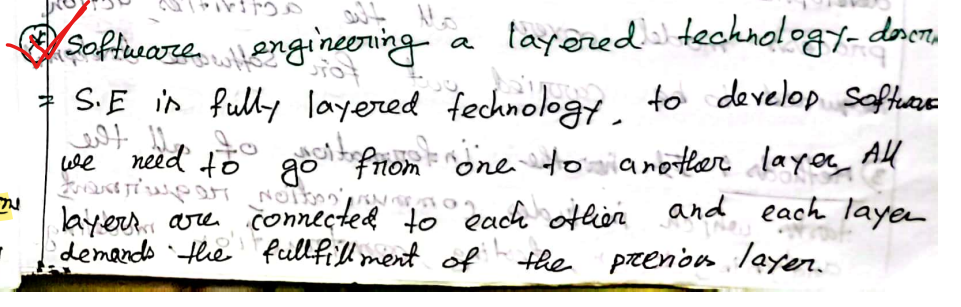 Software engineering a layered technology - descr
⇒ S.E is fully layered technology, to develop Software
we need to go from one to another layer. All
layers are connected to each other and each layer
demands the fullfillment of the previous layer.